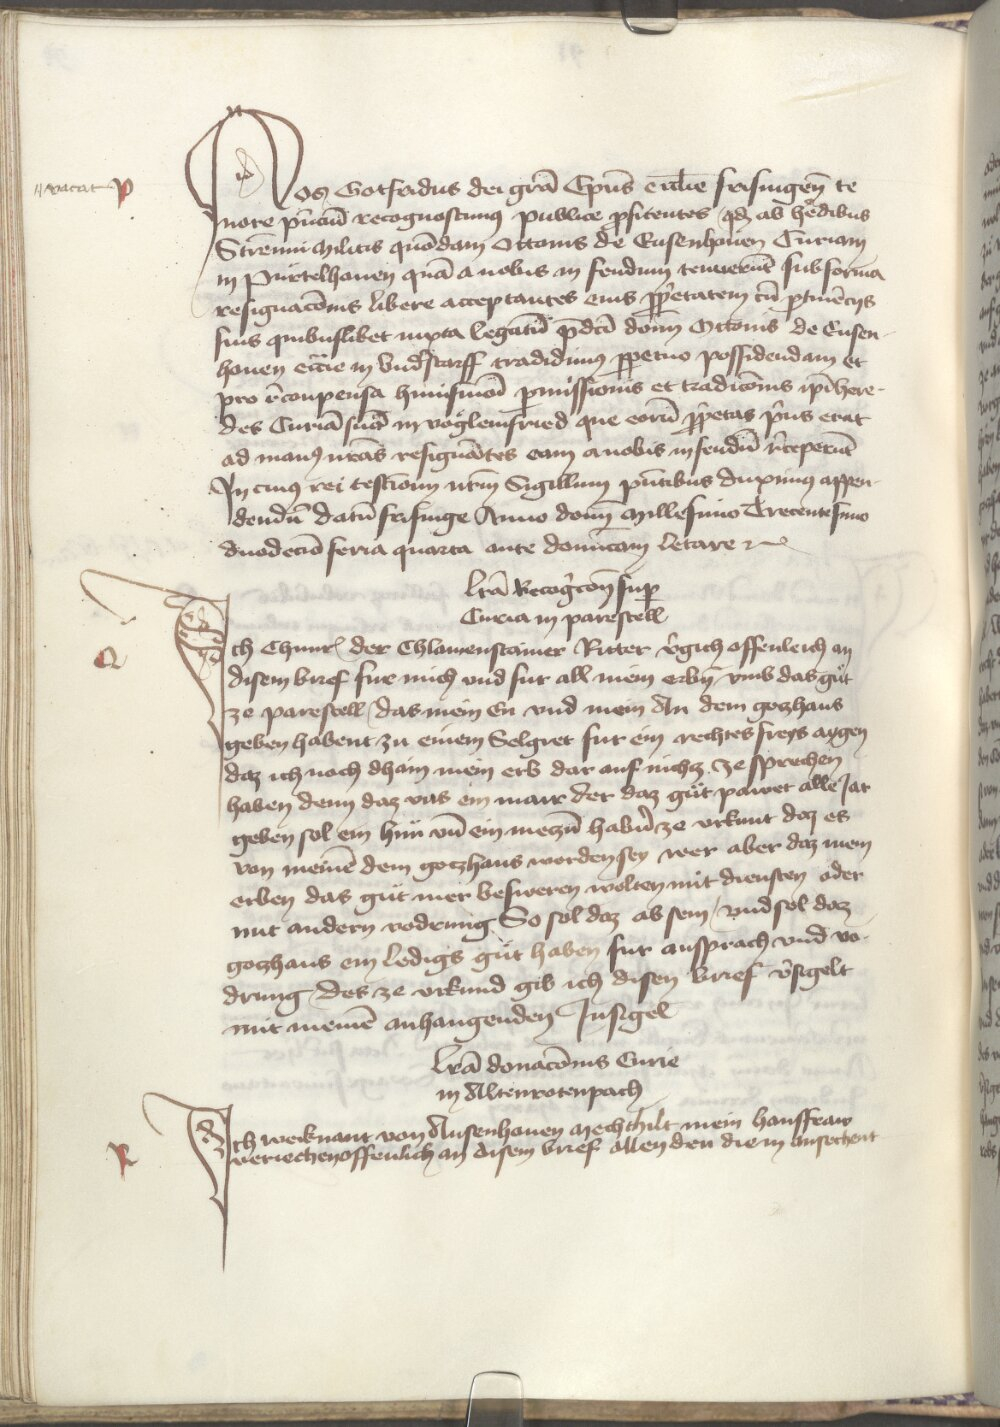 vacat P
Nos Gotfridus dei grā Epūs ecclīe frisingēn te
nore pn̄ciū recognoscimus publice ꝓfitentes qđ ab hēdibus
Strennui militis quōdam Ottonis de Eusenhouen Curiam
in Purtelhouen quā a nobis in feudum tenuerūt sub forma
resignacōnis libere acceptantes eius ꝓp̄etatem cū ꝑtinēcijs
suis quibuslibet iuxta legatū p̄dc̄i domī Ottonis de Eusen-
houen ecclīe in Vnd̄starff tradidimus ꝑpetuo possidendam et
pro r̄conpensa huiusmodi ꝑmissionis et tradicōnis ip̄i here-
des Curiā suā in voglemsried que eorū ꝓp̄etas p̄us erat
ad manus nr̄as resignātes eam a nobis in feudū r̄ceperūt
In cuius rei testiōium nr̄m Sigillum pn̄tibus duximus appen-
dendū datū frisinge Anno domī Millesimo Trecentesimo
duodecīo feria quarta ante domīcam letare
Lr̄a Recogīcōn̄ sup
Curia in parestell
Q Ich Chunr̄ der Chlamenstainer Ritter v̄gich offenleich an
disem brief fur mich vnd fur all mein erbn̄ vmb das gůt
ze parestell das mein En vnd mein An dem gotzhaus
geben habent zu einem Selgret fur ein rechtes freys aygen
daz ich noch dhain mein erb dar auf nichtz ze sprechen
haben denn daz vns ein mair der daz gůt pawet alle Jar
geben sol ein hůn vn̄ ein meczn̄ habn̄ ze vrkunt daz es
von meinē dem gotzhaus worden sey wer aber daz mein
erben das gůt mer besweren wolten mit diensten oder
mit andern vodrung So sol daz ab sein vnd sol daz
gotzhaus ein ledigs gůt haben fur ansprach vnd vo-
drung Des ze vrkund gib ich disen brief v̄sigelt
mit meinē anhangenden Insigel
Lr̄a donacōnis Curie
in Altenrotenpach
R Ich weiknant von Ausenhouen Mechthilt mein hausfraw
veriechen offenlich an disem brief allen den die in ansechent